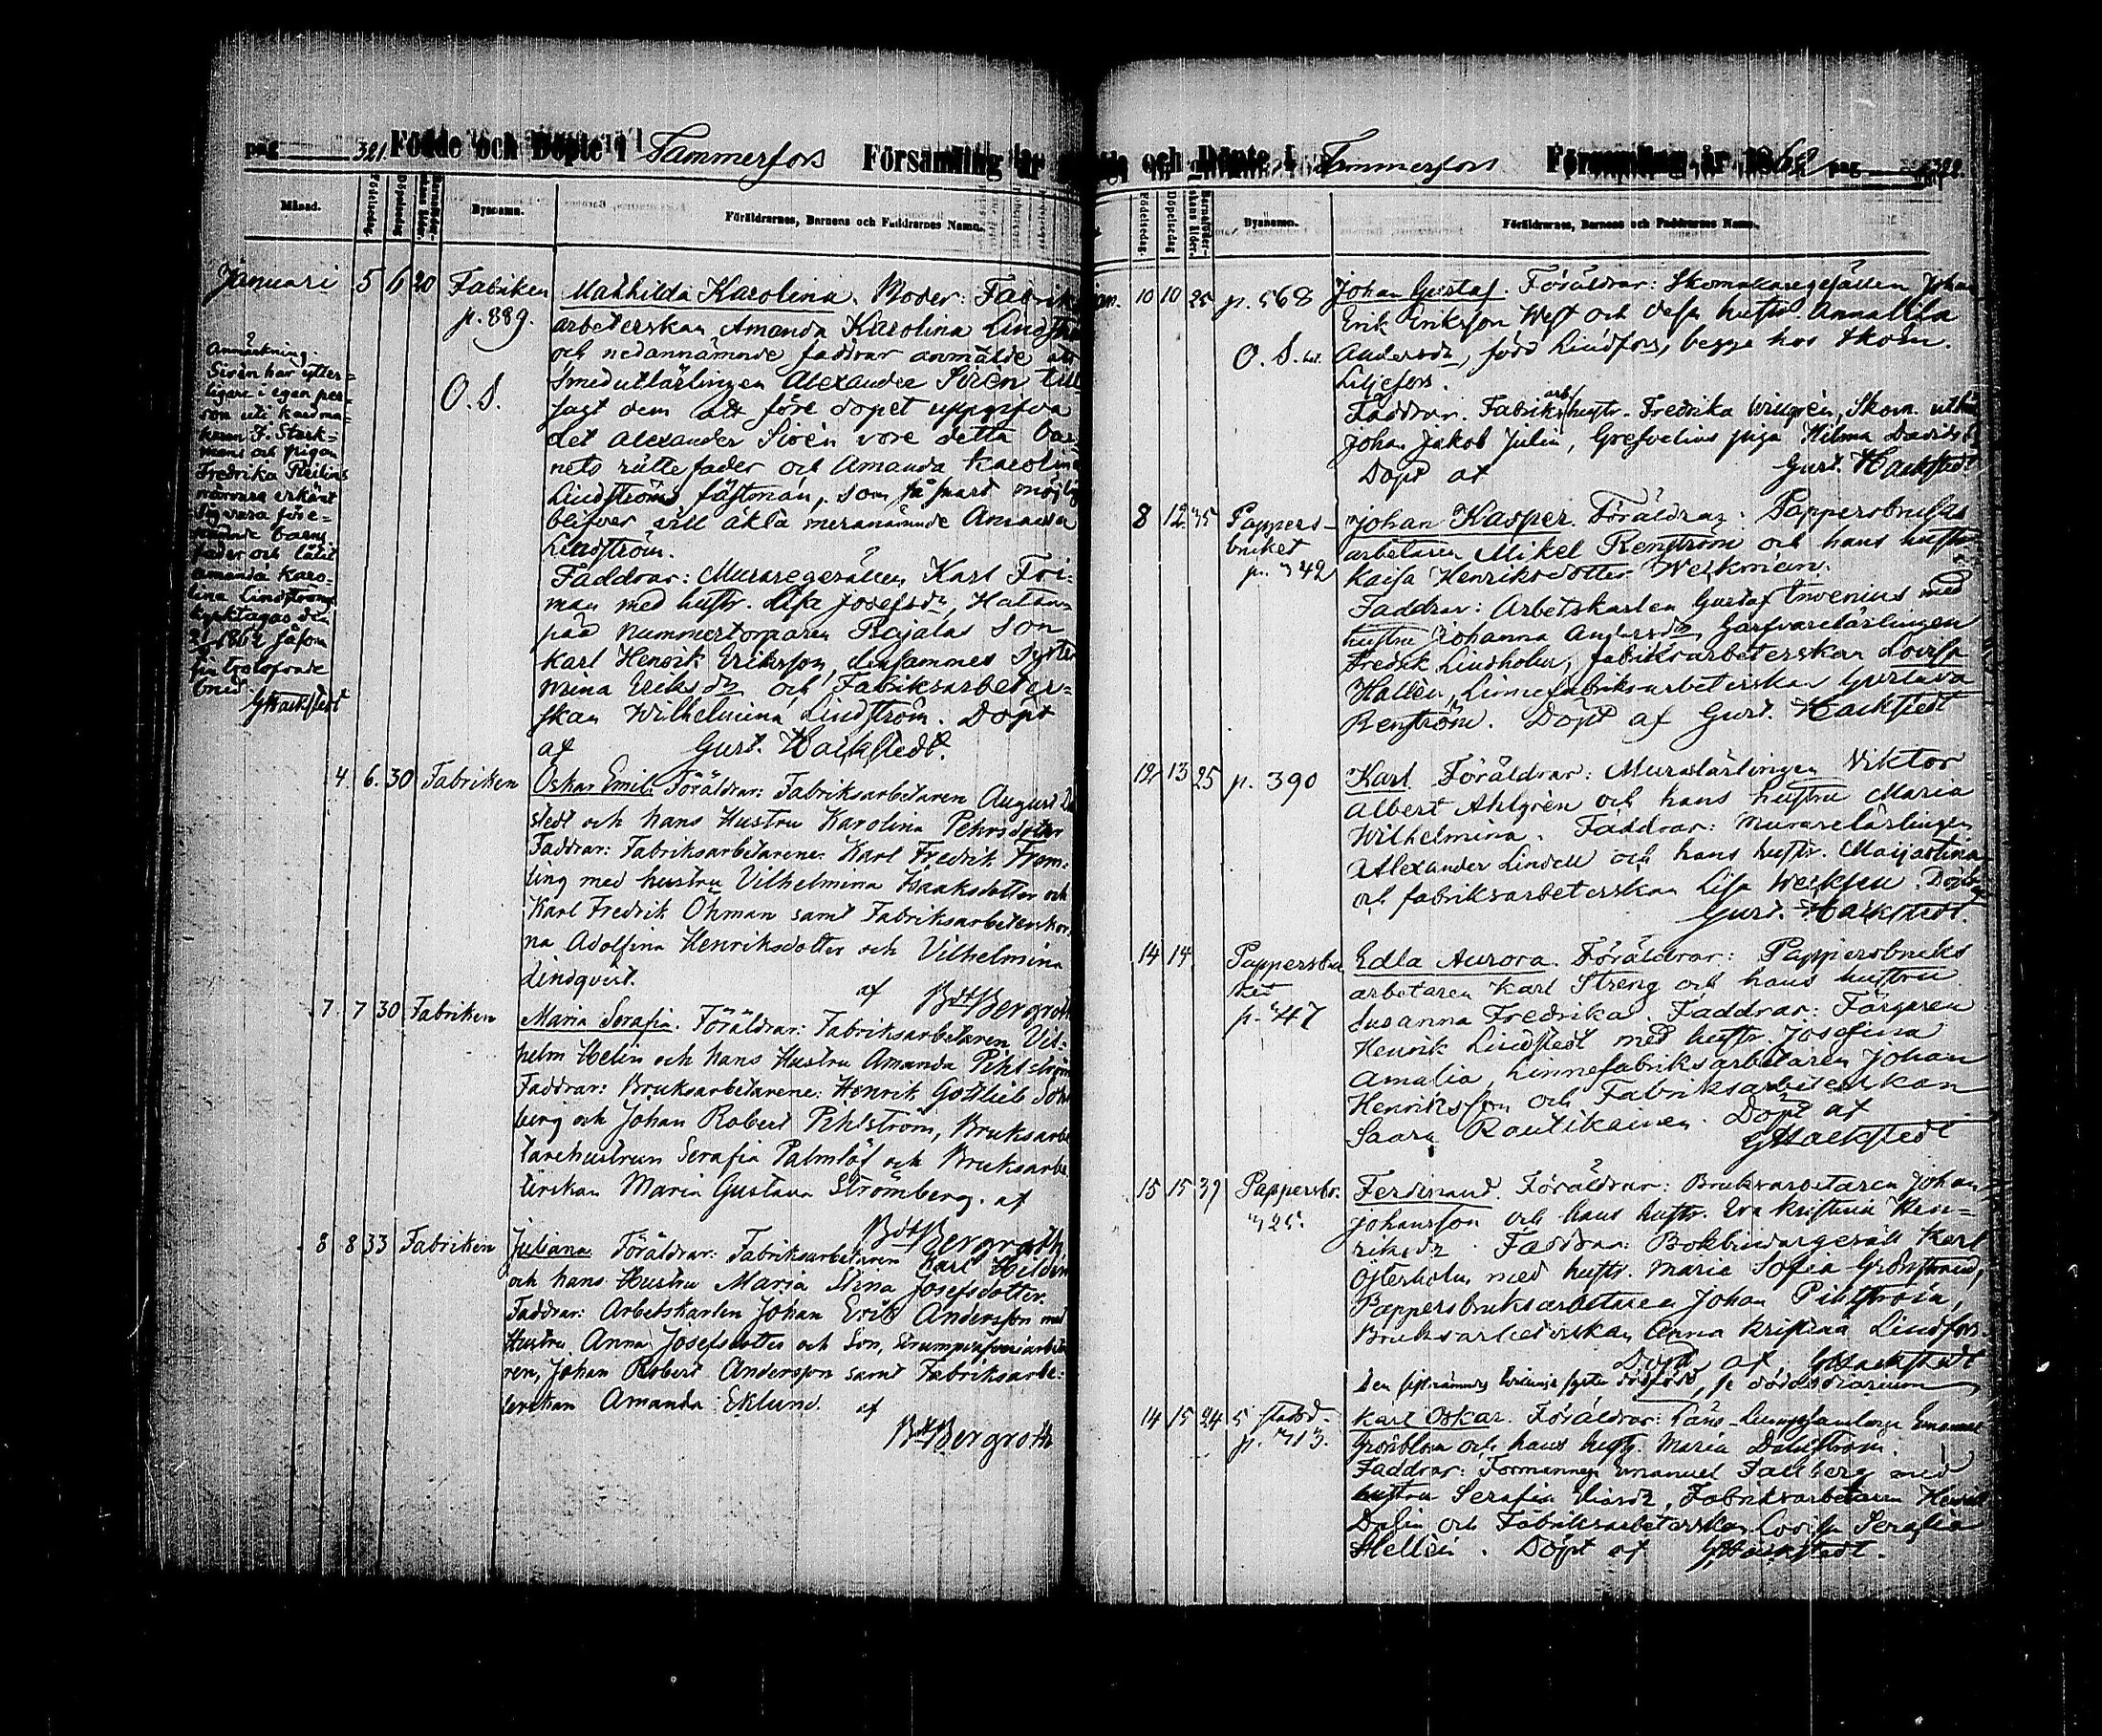 pag 321. Födde och Döpte i Tammerfors Församling år
Månad. Födelsedag. Döpelsedag. Barnaföderskans ålder. Bysnamn. Föräldrarnes, Barnens och Faddrarnes Namn.
Januari 5 6 20 Fabriken p. 889. O. S.
Mathilda Karolina. Moder: Fabriks
arbeterskan Amanda Karolina Lindström
och nedannämnde faddrar anmälde att
Smedutlärlingen Alexander Sirén till
sagt dem att före dopet uppgifva
det Alexander Sirén vore detta bar
nets rätte fader och Amanda Karolina
Lindströms fästman, som så snart möjligt
blifver vill äkta meranämnde Amanda
Lindström.
Faddrar: Muraregesällen Karl Fri-
man med hustr. Lisa Josefsdr, Hatan
pää Nummertorparen Rajalas Son
Karl Henrik Eriksson, densammes syster
Mina Eriksdr och Fabriksarbeter-
skan Wilhelmina Lindström. Döpt
af Gust. Hackstedt.
Anmärkning.
Sirén har ytter-
ligare i egen per-
son uti kardma-
karen F. Stark-
mans och pigan
Fredrika
närvaro erkänt
sig vara före-
nämnde barns
fader och låtit
Amanda Karo-
lina Lindström
kyrktagas den
1862 såsom
sin trolofvade
brud.
GHackstedt
4 6. 30 Fabriken
Oskar Emil. Föräldrar: Fabriksarbetaren August
stedt och hans Hustru Karolina Pehrsdotter
Faddrar: Fabriksarbetarene Karl Fredrik From-
ling med hustru Vilhelmina Isaaksdotter och
Karl Fredrik Öhman samt Fabriksarbeterskor-
na Adolfina Henriksdotter och Vilhelmina
Lindqvist. af BdtBergroth
7. 7 30 Fabriken
Maria Serafia. Föräldrar: Fabriksarbetaren Vil-
helm Helin och hans Hustru Amanda Pihlström
Faddrar: Bruksarbetarene: Henrik Gottlieb
berg och Johan Robert Pihlström, Bruksarbe
tarehustrun Serafia Palmlöf och Bruksarbe
terskan Maria Gustava Strömberg. af
BdtBergroth.
8 8 33 Fabriken
Juliana. Föräldrar: Fabriksarbetaren Karl Hildén
och hans Hustru Maria Stina Josefsdotter.
Faddrar: Arbetskarlen Johan Erik Andersson med
Hustru Anna Josefsdotter och Son,
ren, Johan Robert Andersson samt Fabriksarbe-
terskan Amanda Eklund. af
BdtBergroth
och Döpte i Tammerfors Församling år 1862 pag 322.
Födelsedag. Döpelsedag. Barnaföderskans ålder. Bysnamn. Föräldrarnes, Barnens och Faddrarnes Namn.
Jan. 10 10 25 p. 568 O. S.
Johan Gustaf. Föräldrar: Skomakaregesällen Johan
Erik Eriksson West och dess hustru Anna Ulla
Andersdr, född Lindfors, begge hos skom.
Liljefors.
Faddrar. Fabriks arb hustr. Fredrika Willgrén, Skom.
Johan Jakob Julin, Grefvelius piga Hilma Davidsdr
Döpt af Gust. Hackstedt
8 12 35 Pappers-
bruket
p. 742
Johan Kasper. Föräldrar: Pappersbruks
arbetaren Mikel Renström och hans hustru
Kaisa Henriksdotter Weckman.
Faddrar: Arbetskarlen Gustaf Invenius med
hustru Johanna Andersdr, Garfvarelärlingen
Fredrik Lindholm, fabriksarbeterskan Lovisa
Hallén, Linnefabriksarbeterskan Gustava
Renström. Döpt af Gust. Hackstedt
12 13 25 p. 390
Karl. Föräldrar: Murarlärlingen Viktor
Albert Ahlgrén och hans hustru Maria
Wilhelmina. Faddrar: Murarelärlingen
Alexander Lindell och hans hustr. Maijastina
och fabriksarbeterskan Lisa. Döpt af
Gust. Hackstedt.
14 14 Pappersbru
ket
p. 747
Edla Aurora. Föräldrar: Pappersbruks
arbetaren Karl Streng och hans hustru
Susanna Fredrika. Faddrar: Färgaren
Henrik Lindstedt med hustr. Josefina
Amalia, Linnefabriksarbetaren Johan
Henriksson och Fabriksarbeterskan
Saara Rautikainen. Döpt af
GHackstedt
15 15 39 Pappersbr.
725.
Ferdinand. Föräldrar: Bruksarbetaren Johan
Johansson och hans hustr. Eva Kristina Hen-
riksdr. Faddrar: Bokbindargesäll Karl
Österholm med hustr. Maria Sofia Grönstrand,
Pappersbruksarbetaren Johan Pihlström,
Bruksarbeterskan Anna Kristina Lindfors.
Döpt af GHackstedt
Den sistnämndes tvillings syster dödfödd, se dödsdiarium
14 15 24 5 Stadsd.
p. 713.
Karl Oskar. Föräldrar: Läns Emanuel
Grönblom och hans hustr. Maria Dahlström.
Faddrar: Formannen Emanuel Fallberg med
hustru Serafia Eliasdr, Fabriksarbetaren Henrik
Dalin och Fabriksarbeterskan Lovisa Serafia
Hellén. Döpt af GHackstedt.